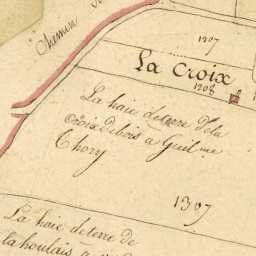 Chemin
1207
La Croix
1208
La haie de terre de la
croix de bois a Guilme
Thory
1307
La haie de terre de
la houlais a